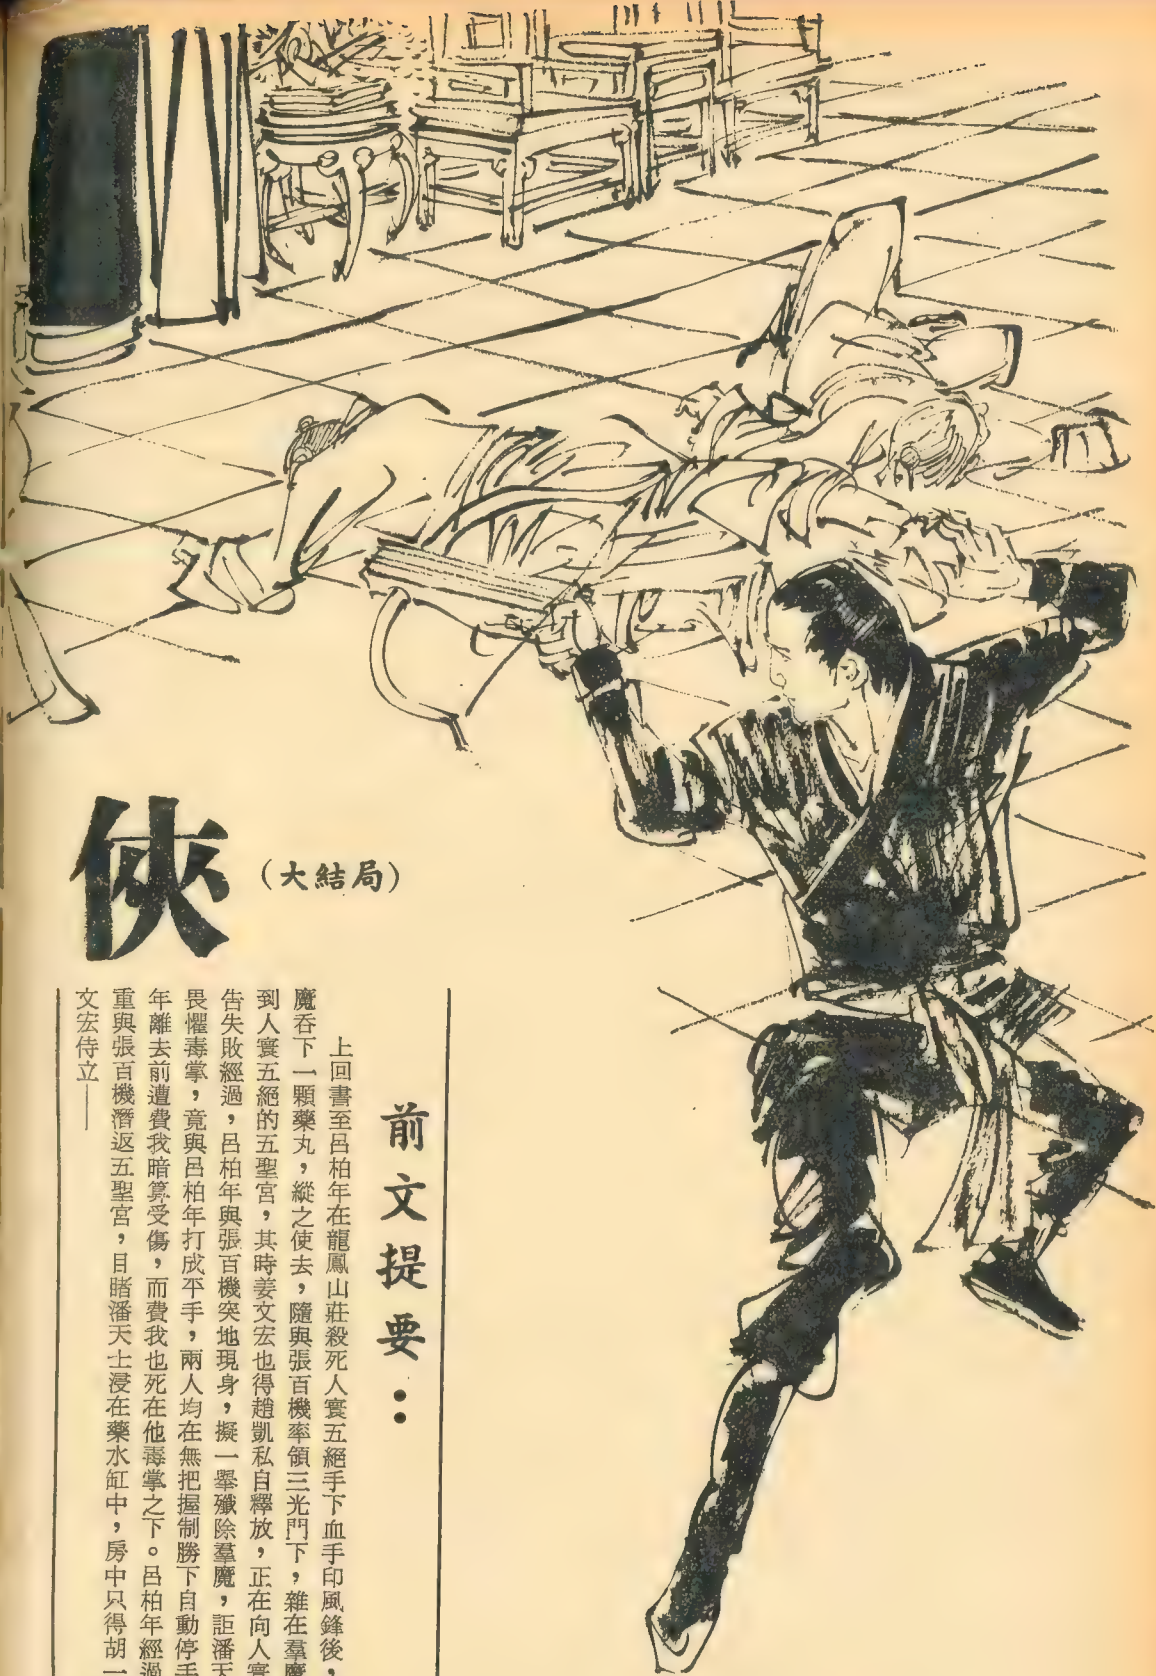 俠
（大結局）
前文提要：
上回書至呂柏年在龍鳳山莊殺死人寰五絕手下血手印風鋒後，
魔吞下一顆藥丸，縱之使去，隨與張百機率領三光門下，雜在羣魔
到人寰五絕的五聖宮，其時姜文宏也得趙凱私自釋放，正在向人寰
告失敗經過，呂柏年與張百機突地現身，擬一舉殲除羣魔，詎潘天
畏懼毒掌，竟與呂柏年打成平手，兩人均在無把握制勝下自動停手
年離去前遭費我暗算受傷，而費我也死在他毒掌之下。呂柏年經過
重與張百機潛返五聖宮，目睹潘天士浸在藥水缸中，房中只得胡一
文宏侍立——